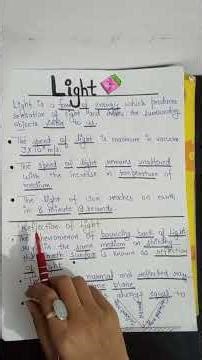 Light
Light is a form of energy which produces
sensation of light and makes the surrounding
objects visible to us.
The speed of light is maximum in vacuum
3×10⁸ m/s.
The speed of light remains unaffected
with the increase in temperature of
medium.
The light of sun reaches on earth
in 8 minute 19 seconds.
Reflection of Light
The phenomenon of bouncing back of light
rays in the same medium on striking
smooth surface is known as reflection
of light.
normal and reflected ray
same plane.
always equal to